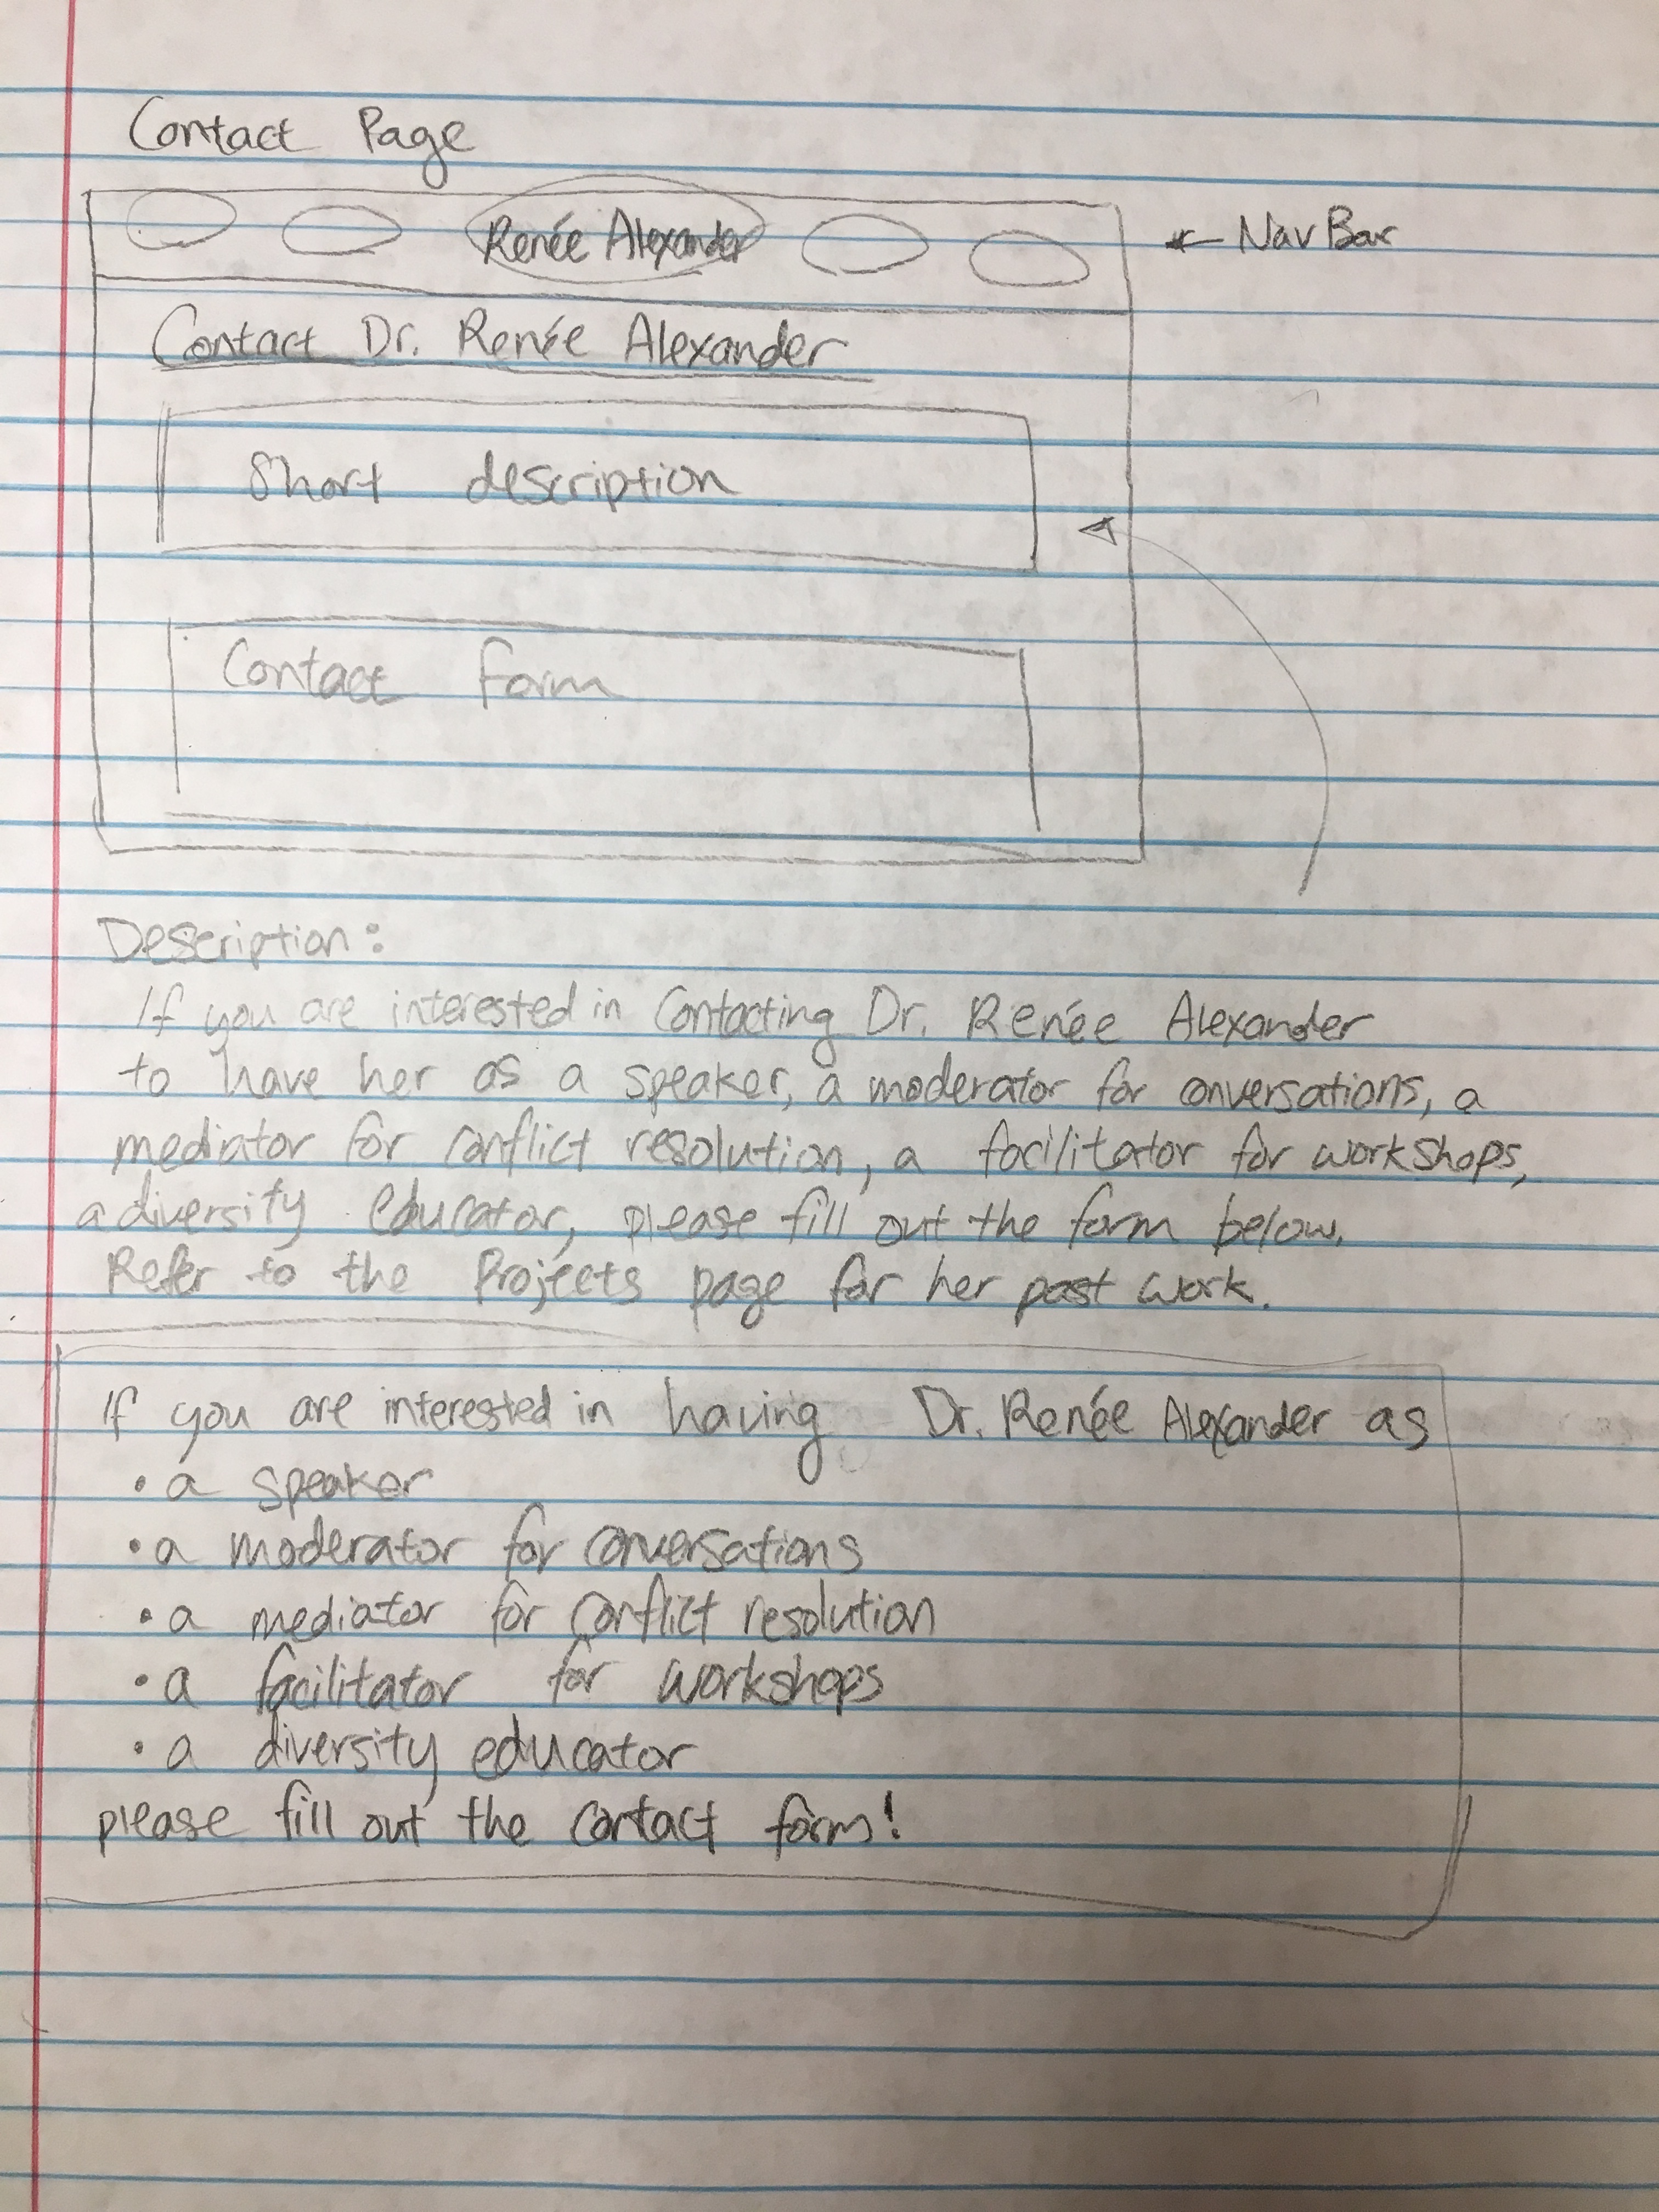 Contact Page
Renée Alexander
← Nav Bar
Contact Dr. Renée Alexander
Short description
Contact form
Description:
If you are interested in contacting Dr. Renée Alexander
to have her as a speaker, a moderator for conversations, a
mediator for conflict resolution, a facilitator for workshops,
a diversity educator, please fill out the form below.
Refer to the Projects page for her past work.
If you are interested in having Dr. Renée Alexander as
• a speaker
• a moderator for conversations
• a mediator for conflict resolution
• a facilitator for workshops
• a diversity educator
please fill out the contact form!